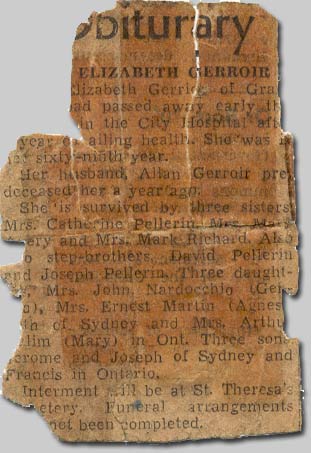 Obiturary
ELIZABETH GERROIR
Elizabeth Gerrior of Gra
had passed away early th
in the City Hospital aft
year of ailing health. She was
sixty-ninth year.
Her husband, Allan Gerroir pre
deceased her a year ago.
She is survived by three sisters
Mrs. Catherine Pellerin, Mrs.
ery and Mrs. Mark Richard. Also
step-brothers, David Pellerin
and Joseph Pellerin. Three daught-
Mrs. John Nardocchio (Gen
Mrs. Ernest Martin (Agnes
th of Sydney and Mrs. Arthu
lim (Mary) in Ont. Three son
erome and Joseph of Sydney and
Francis in Ontario.
Interment will be at St. Theresa's
etery. Funeral arrangements
not been completed.